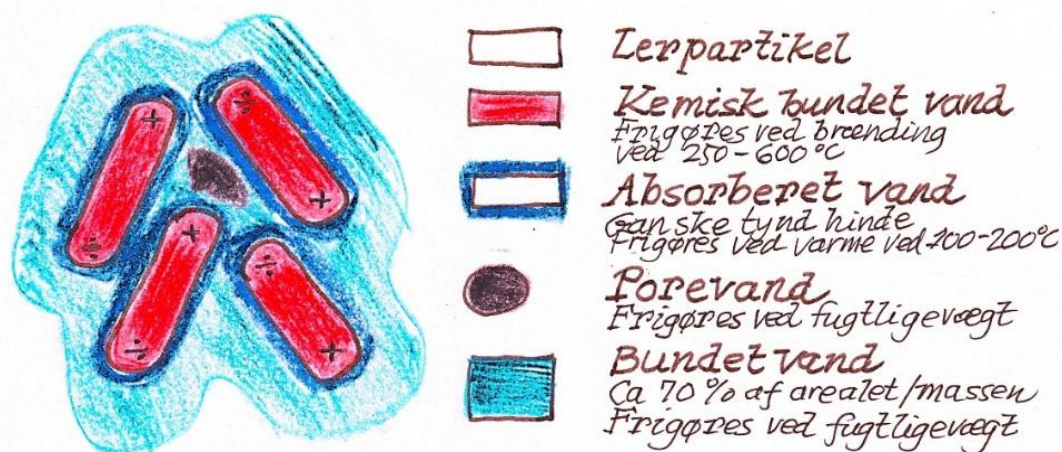 Lerpartikel
Kemisk bundet vand
Frigøres ved brænding
ved 250-600°C
Absorberet vand
Ganske tynd hinde
Frigøres ved varme ved 100-200°C
Porevand
Frigøres ved fugtligevægt
Bundet vand
Ca 70% af arealet/massen
Frigøres ved fugtligevægt